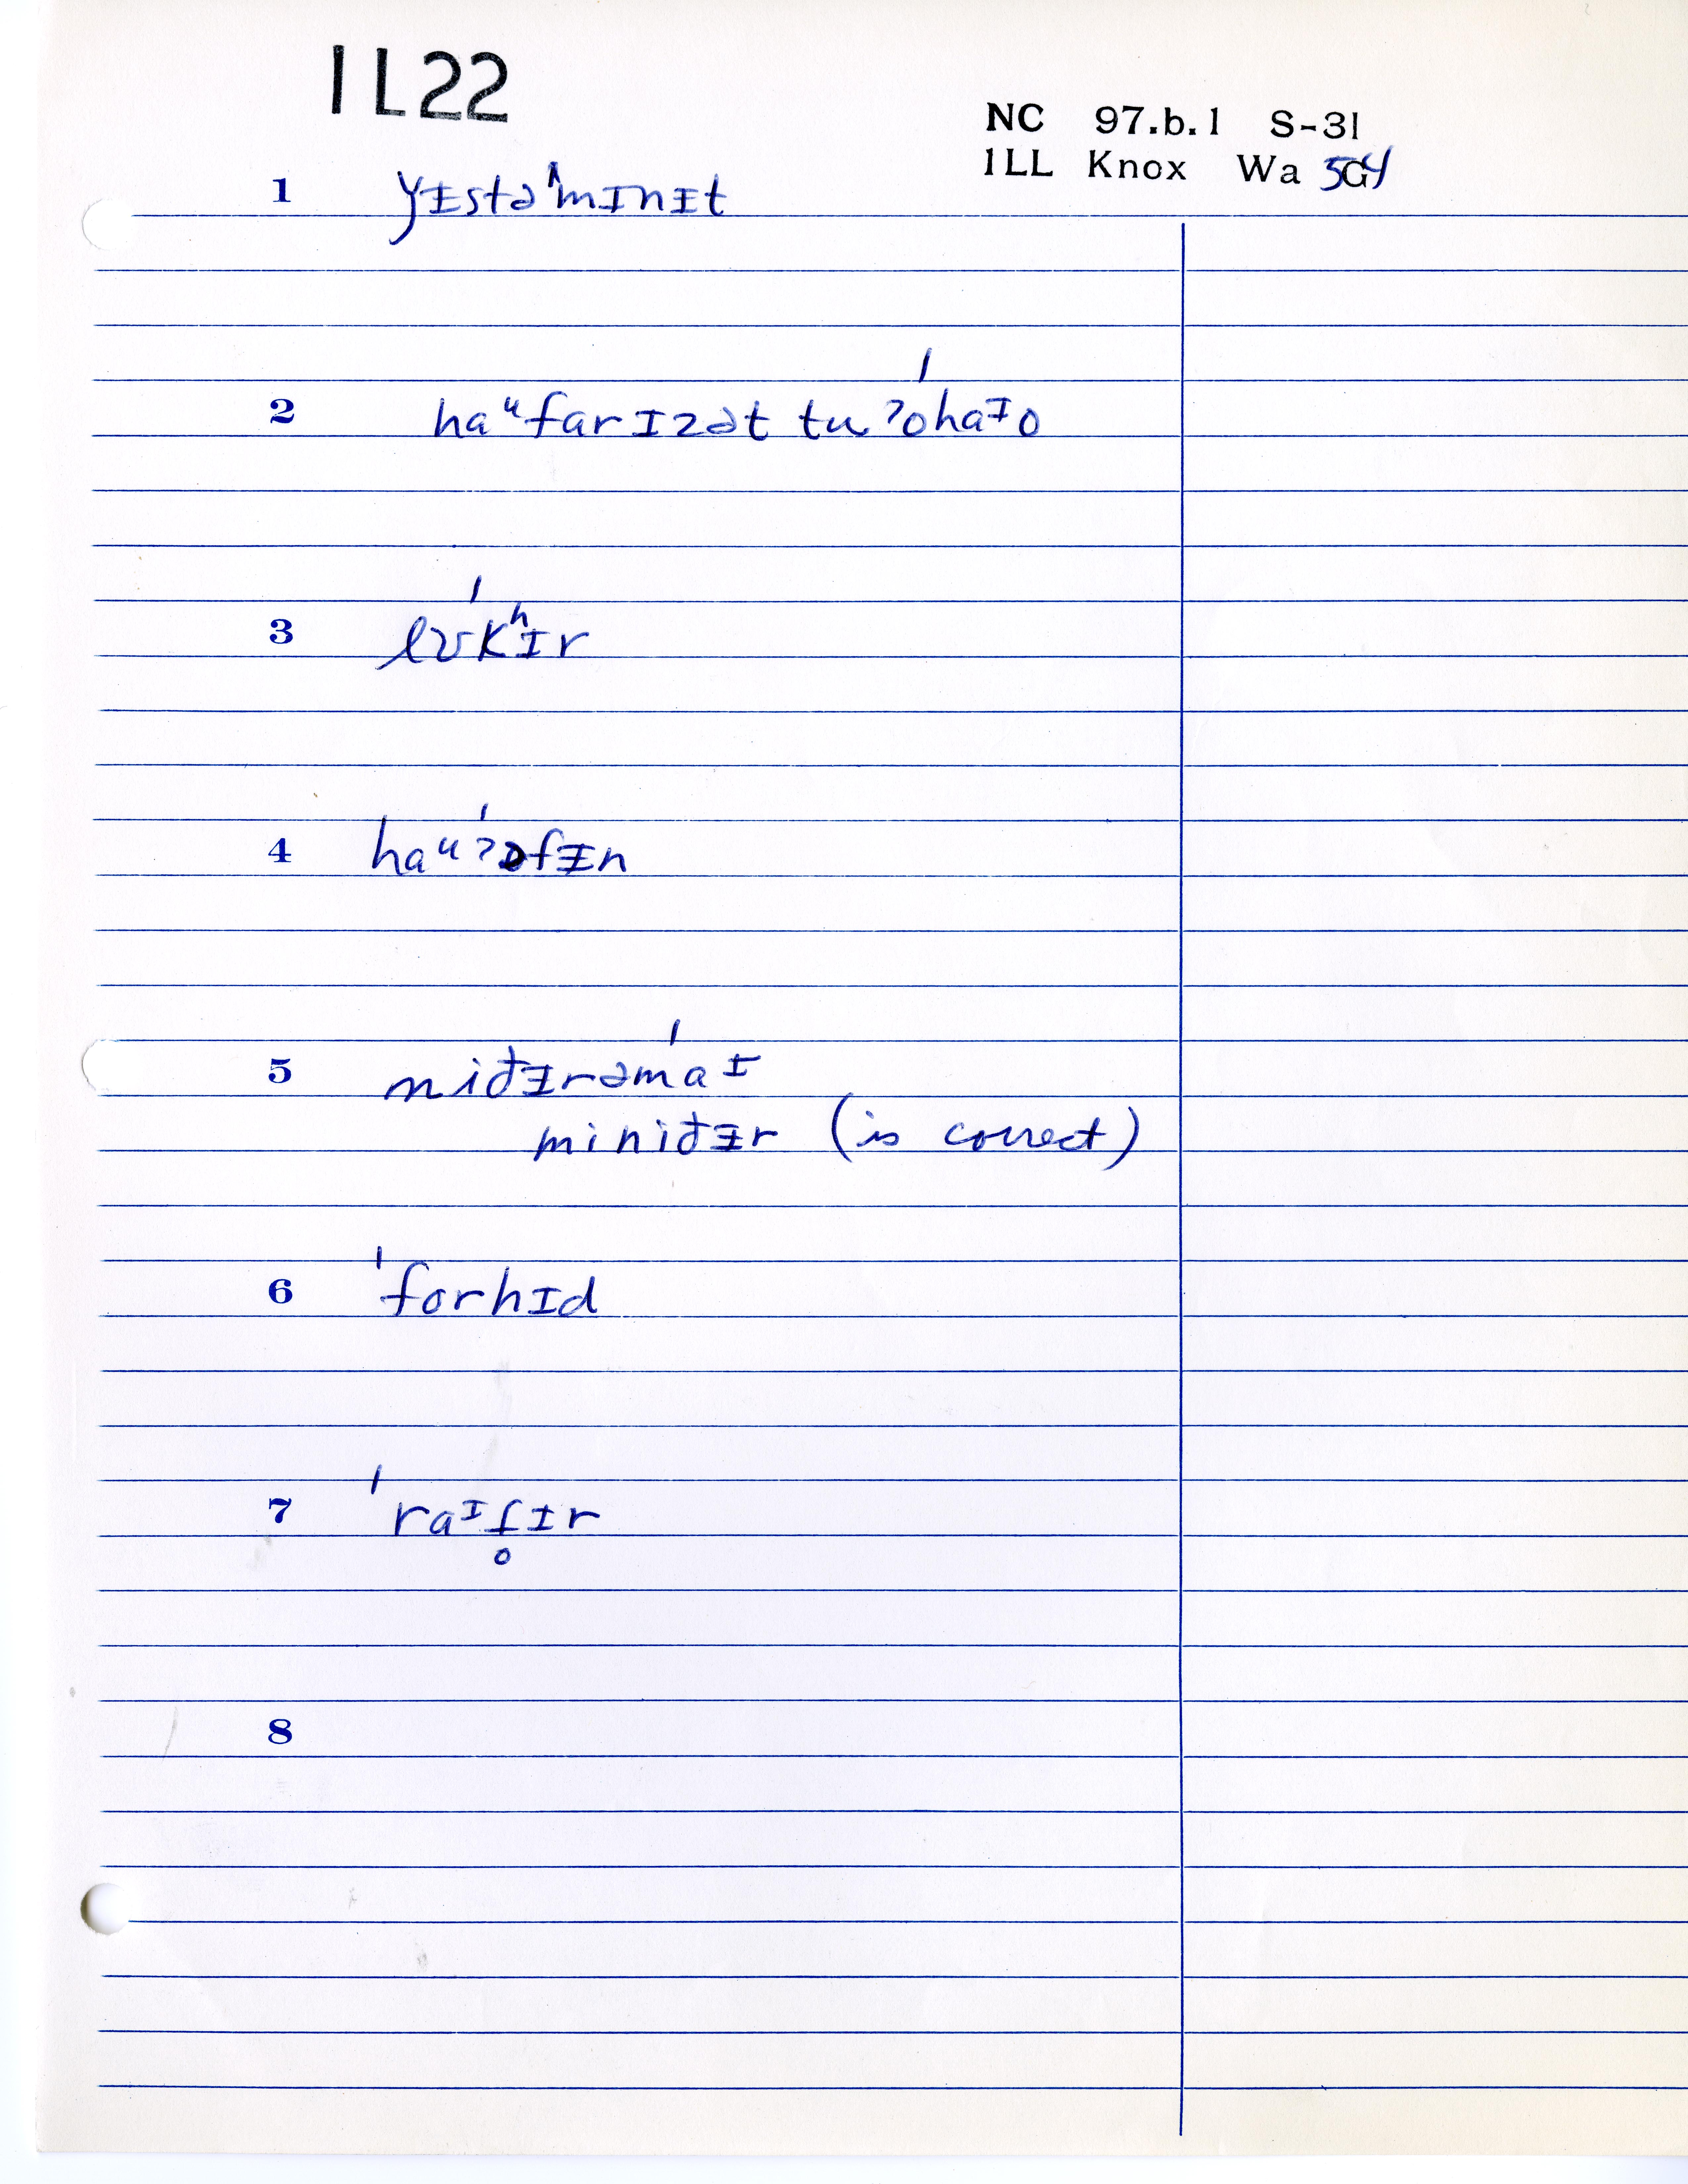 1L22
NC 97.b.1 S-31
1LL Knox Wa 5G4
1 yɪstəˈmɪnɪt
2 haᵘfarɪzət tuˈʔohaᶦo
3 lʊˈkʰɪr
4 haᵘˈʔɔfɪn
5 miðɪrəˈmaᶦ
miniðɪr (is correct)
6 ˈforhɪd
7 ˈraᶦf̥ɪr
8